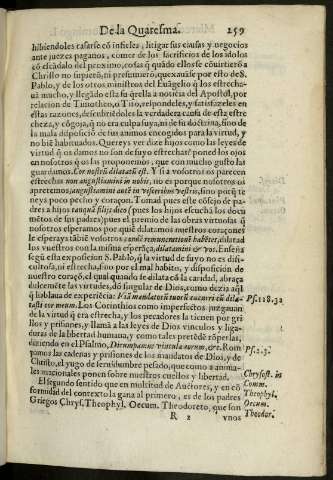 De la Quaresma. 259
hibiendoles casarse cõ infieles, litigar sus causas y negocios
ante juezes paganos, comer de los sacrificios de los idolos
cõ escãdalo del proximo, cosas q̃ quãdo ellos se cõuirtierõ a
Christo no supierõ, ni presumierõ, que xauãse por esto de S.
Pablo, y de los otros ministros del Euãgelio q̃ los estrecha-
uã mucho, y llegãdo esta su q̃rella a noticia del Apostol, por
relacion de Timotheo, o Tito, respondeles, y satisfazeles en
estas razones, descubriẽdoles la verdadera causa de esta estre
cheza, y cõgoja, q̃ no era culpa suya, ni de su dotrina, sino de
la mala disposiciõ de sus animos encogidos para la virtud, y
no biẽ habituados. Quereys ver dize hijos como las leyes de
virtud q̃ os damos no son de suyo estrechas? poned los ojos
en nosotros q̃ os las proponemos, que con mucho gusto las
guardamos. Cor nostrũ dilatatũ est. Y si a vosotros os parecen
estrechas non angustiamini in nobis, no es porque nosotros os
apretemos, angustiamini autẽ in visceribus vestris, sino porq̃ te
neys poco pecho y coraçon. Tomad pues este cõsejo de pa-
dres a hijos tanquã filijs dico (pues los hijos escuchã los docu
mẽtos de sus padres) pues el premio de las obras virtuosas q̃
nosotros esperamos por quiẽ dilatamos nuestros coraçones
le esperays tãbiẽ vosotros eandẽ remunerationẽ habẽtes, dilatad
los vuestros con la misma esperãça, dilatamini & vos. Enseña
segũ esta exposicion S. Pablo, q̃ la virtud de suyo no es difi-
cultosa, ni estrecha, sino por el mal habito, y disposicion de
nuestro coraçõ, el qual quando se dilata cõ la caridad, abraça
dulcemẽte las virtudes, dõ singular de Dios, como dezia aq̃l
q̃ hablaua de experiẽcia: Viã mandatorũ tuorũ cucurri cũ dila-
tasti cor meum. Los Corinthios como imperfectos juzgauan
de la virtud q̃ era estrecha, y los pecadores la tienen por gri
llos y prisiones, y llamã a las leyes de Dios vinculos y liga-
duras de la libertad humana, y como tales pretẽdẽ rõperlas,
diziendo en el Psalmo, Dirumpamus vincula eorum, &c. Rom
pamos las cadenas y prisiones de los mandatos de Dios, y de
Christo, el yugo de seruidumbre pesado, que como a anima-
les nacionales ponen sobre nuestros cuellos y libertad.
El segundo sentido que en multitud de Auctores, y en cõ
formidad del contexto la gana al primero, es de los padres
Griegos Chrys. Theophyl. Oecum. Theodoreto, que son
R 2 vnos
Ps. 118. 32
Ps. 2. 3.
Chrysost. in
Comm.
Theophyl.
Oecum.
Theodor.